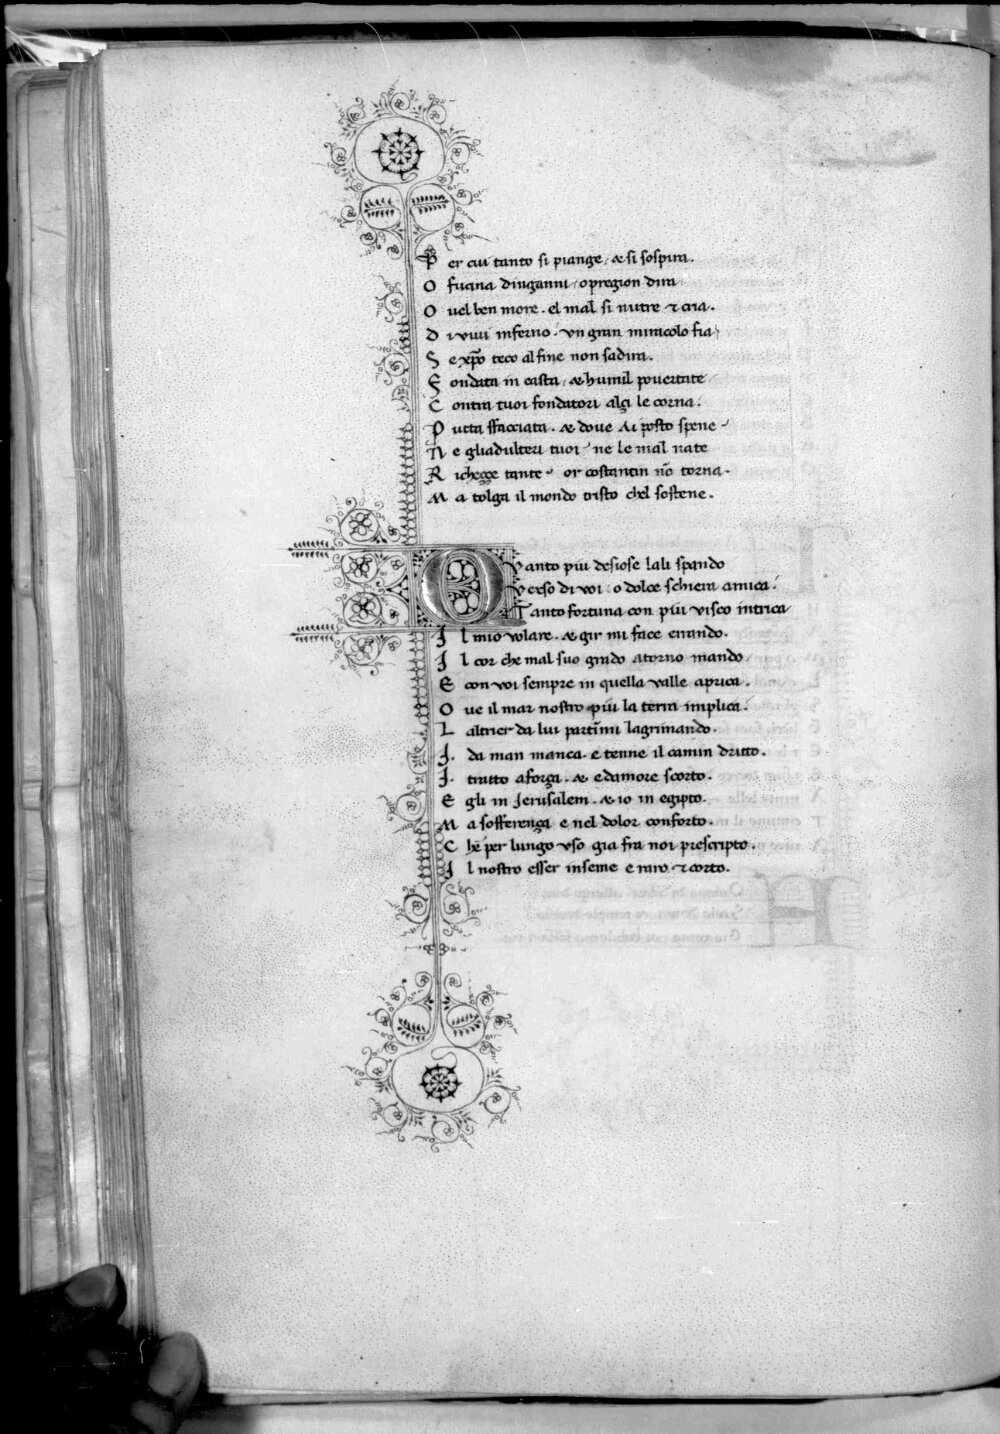 P er cui tanto si piange, & si sospira.
O fucina dinganni, o pregion dira
O uel ben more. el mal si nutre & cria.
D i viui inferno. vn gran miracolo fia
S e xp̄o teco al fine non sadira.
F ondata in casta, & humil pouertate
C ontra tuoi fondatori alçi le corna.
P utta sfacciata. & doue ai posto spene
N e gliadulteri tuoi ne le mal nate
R ichecçe tante or costantin nō torna.
M a tolga il mondo tristo chel sostene.
Q vanto piu desiose lali spando
verso di voi o dolce schiera amica.
Tanto fortuna con piu visco intrica
I l mio volare. & gir mi face errando.
I l cor che mal suo grado atorno mando
E con voi sempre in quella valle aprica.
O ue il mar nostro piu la terra implica.
L altrier da lui partīmi lagrimando.
I. da man manca. e tenne il camin dritto.
I. tratto a força. & e damore scorto.
E gli in Jerusalem. & io in egipto.
M a sofferença e nel dolor conforto.
C he per lungo vso gia fra noi prescripto.
I l nostro esser inseme e raro & corto.